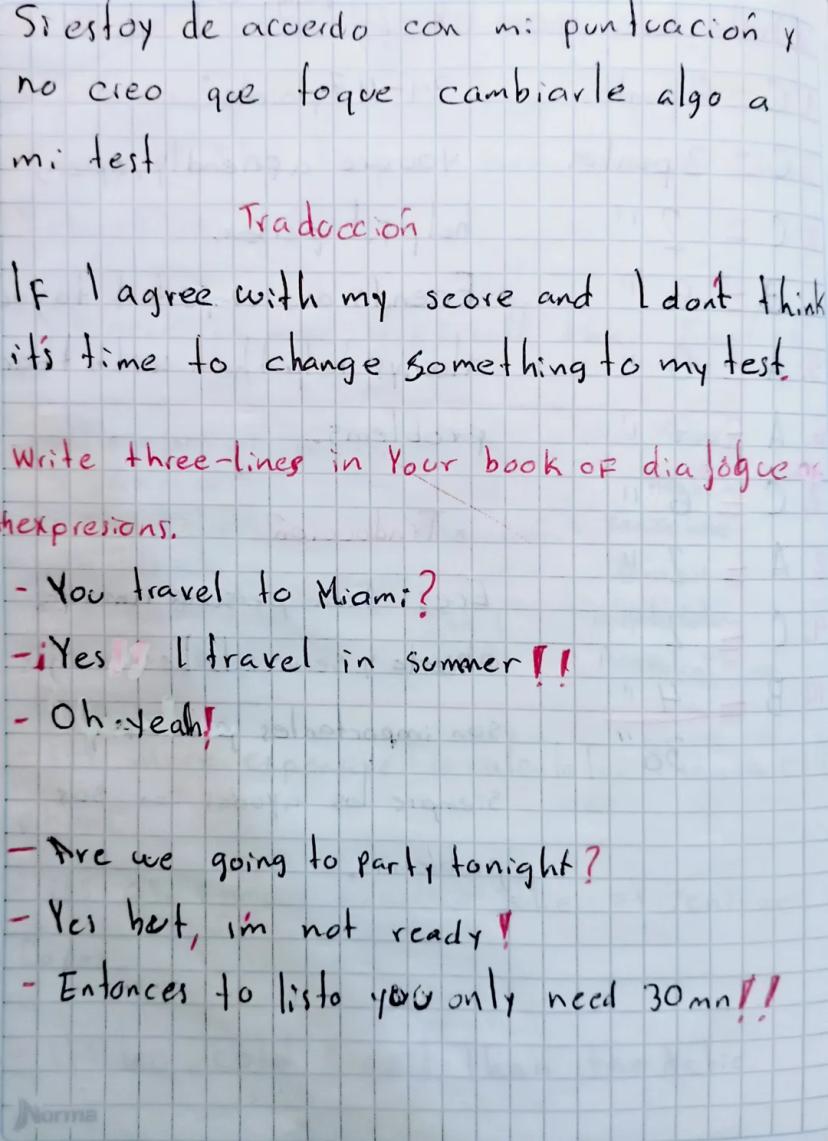 Si estoy de acuerdo con mi puntuación y
no creo que toque cambiarle algo a
mi test
Traducción
If I agree with my score and I don't think
it's time to change something to my test.
Write three-lines in Your book of dialogue
hexpresions.
- You travel to Miami?
- ¡Yes I travel in summer!!
- Oh yeah!
- Are we going to party tonight?
- Yes but, i'm not ready!
- Entonces to listo you only need 30 mn!!
Norma